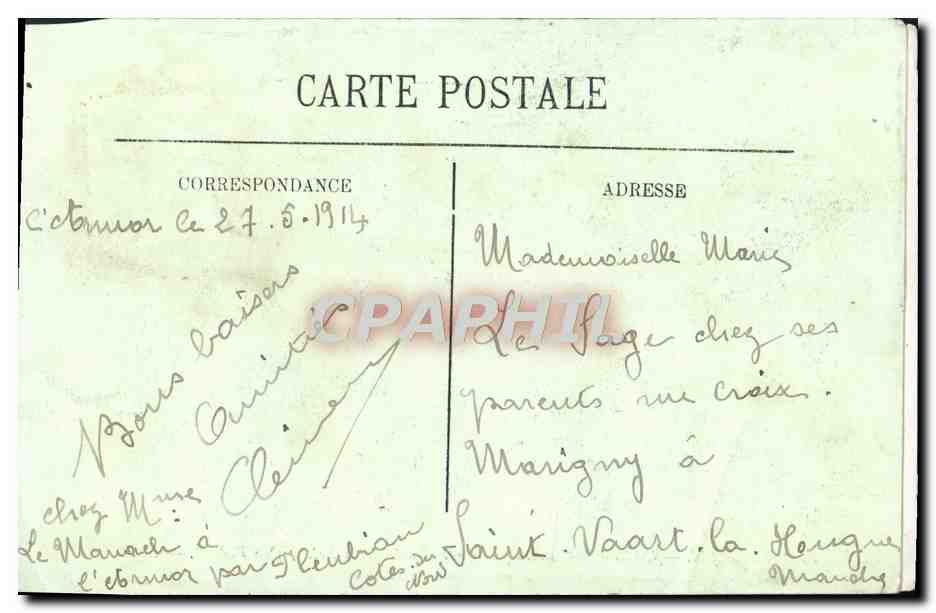 CARTE POSTALE
CORRESPONDANCE
L'Armor le 27.5.1914
Bons baisers
Amitiés
chez Mme
Le Manach à
l'Armor par Pleubian
Cotes du
Nord
ADRESSE
Mademoiselle Marie
Le Sage chez ses
parents rue Croix.
Marigny à
Saint. Vaart. la. Hougue
Manche
CPAPHIL